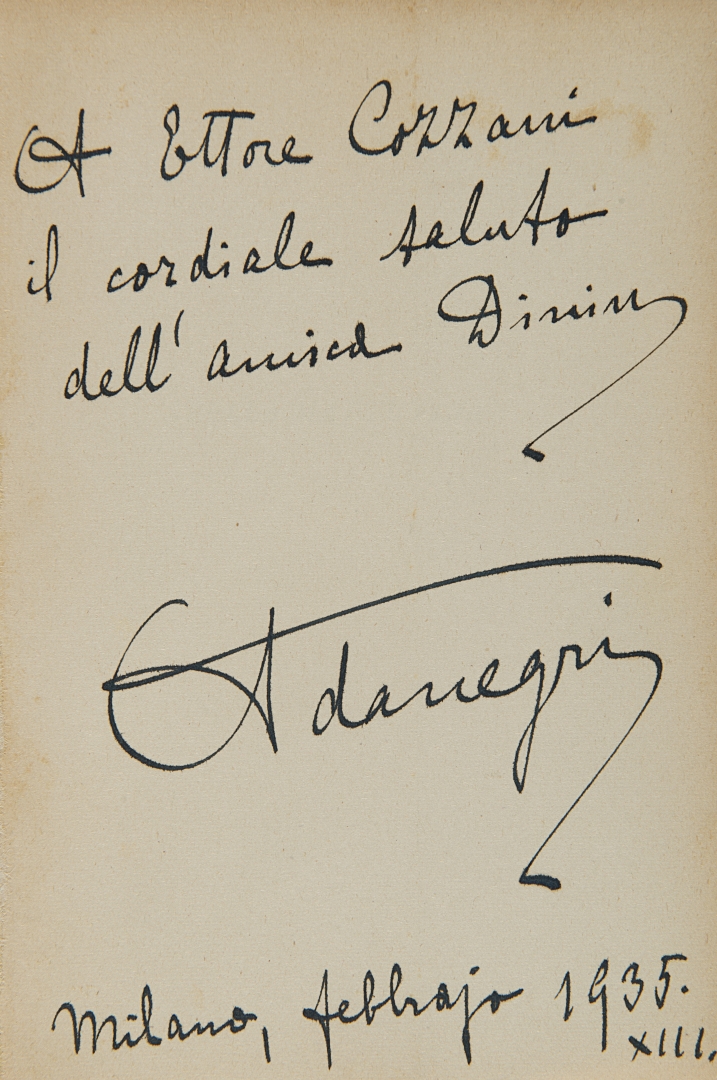 A Ettore Cozzani
il cordiale saluto
dell'amica Dinin
Adanegri
Milano, febbrajo 1935.
XIII.